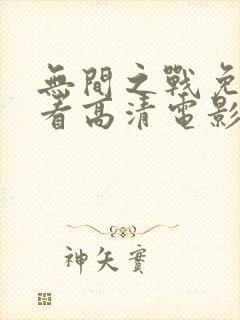 無間之戰免
看高清電影
神矢實